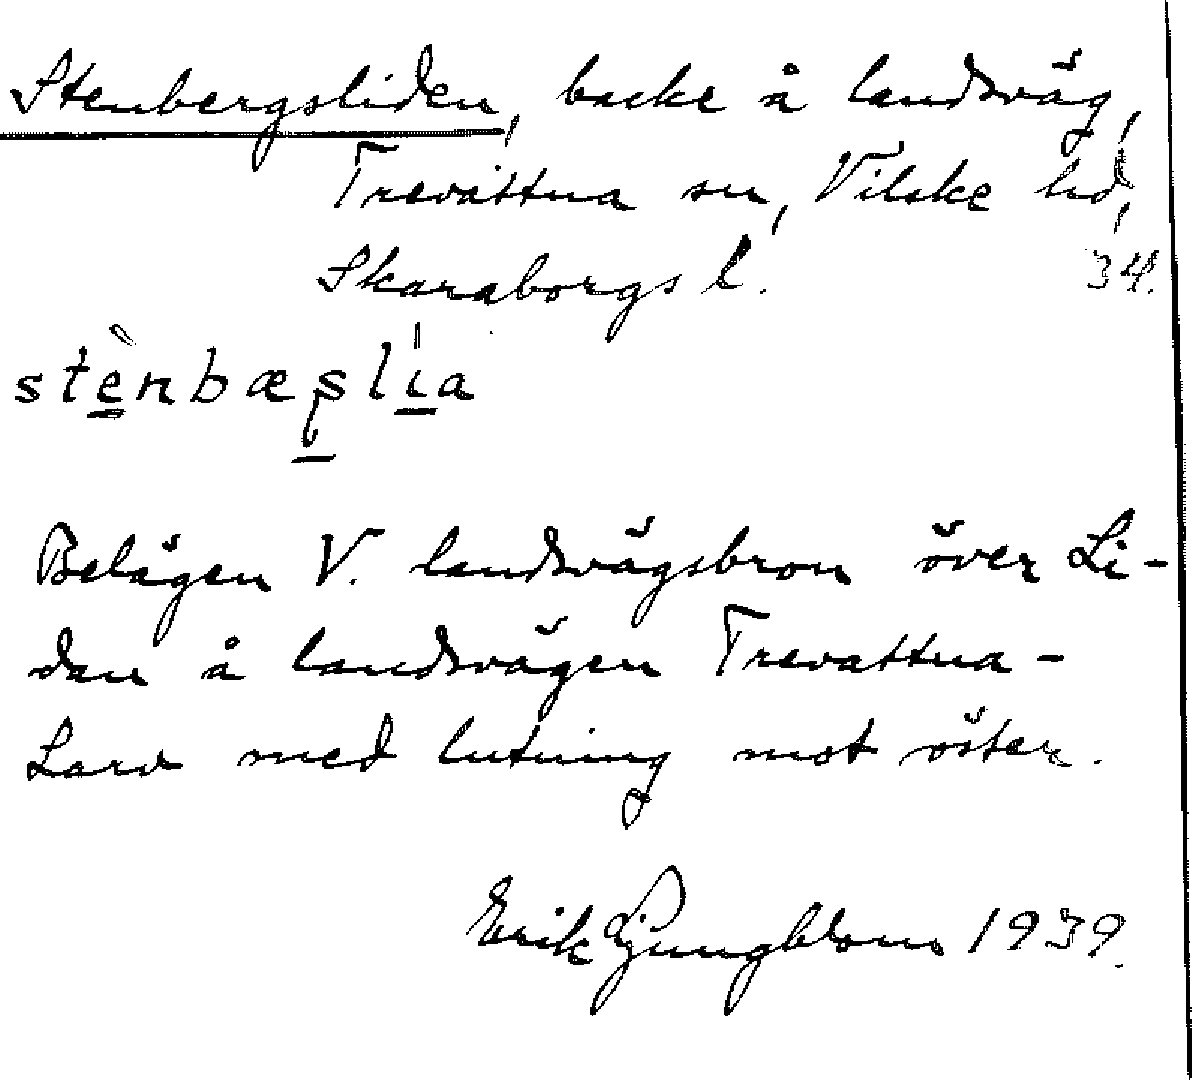 Stenbergsliden, backe å landsväg,
Trevattna sn, Vilske hd,
Skaraborgs l. 34.
stènbæʂlía
Belägen V. landsvägsbron över Li-
dan å landsvägen Trevattna -
Larv med lutning mot öster.
Erik Ljungblom 1939.